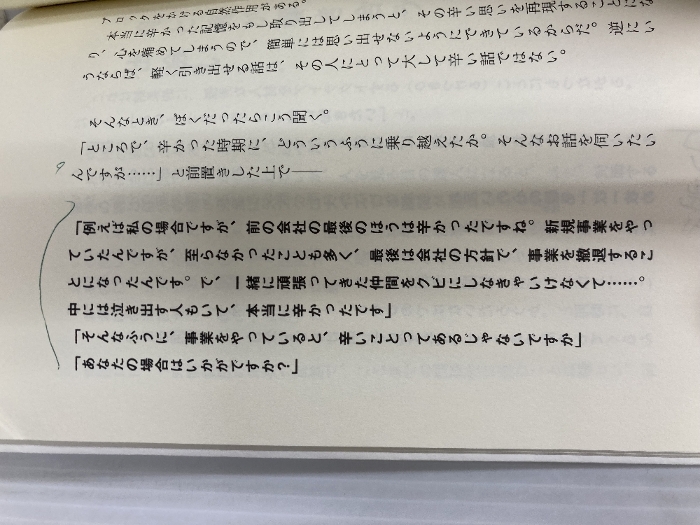 ブロックをかける自然作用がある。
本当に辛かった記憶をもし取り出してしまうと、その辛い思いを再現することにな
り、心を痛めてしまうので、簡単には思い出せないようにできているからだ。逆にい
うならば、軽く引き出せる話は、その人にとって大して辛い話ではない。
そんなとき、ぼくだったらこう聞く。
「ところで、辛かった時期に、どういうふうに乗り越えたか。そんなお話を伺いたい
んですが……」と前置きした上で──
「例えば私の場合ですが、前の会社の最後のほうは辛かったですね。新規事業をやっ
ていたんですが、至らなかったことも多く、最後は会社の方針で、事業を撤退するこ
とになったんです。で、一緒に頑張ってきた仲間をクビにしなきゃいけなくて……。
中には泣き出す人もいて、本当に辛かったです」
「そんなふうに、事業をやっていると、辛いことってあるじゃないですか」
「あなたの場合はいかがですか?」